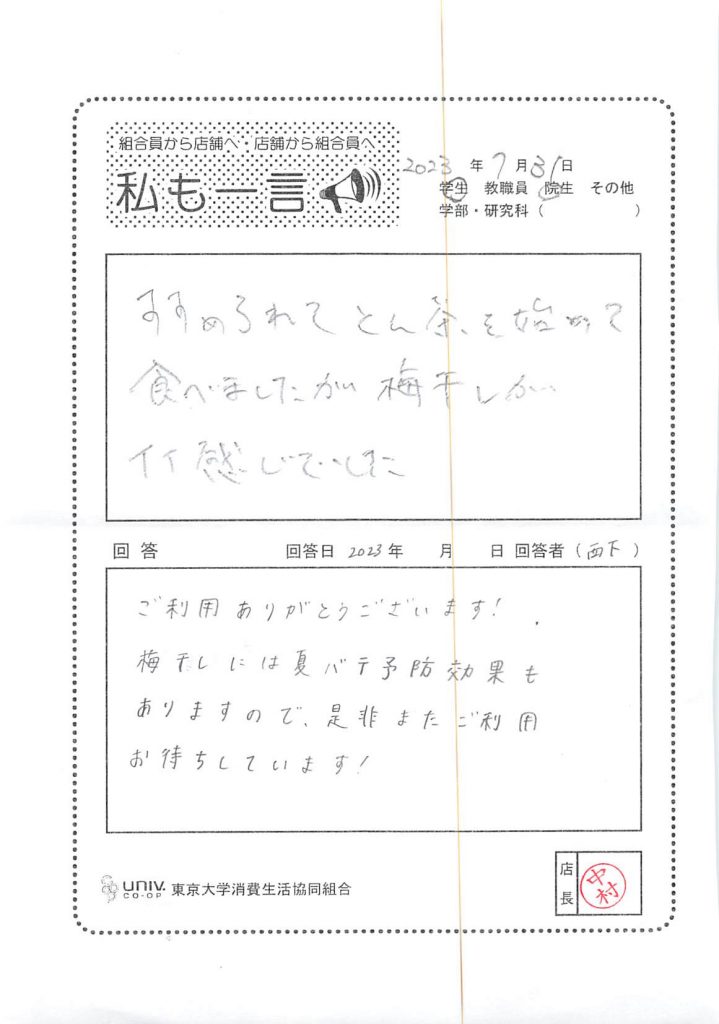 組合員から店舗へ・店舗から組合員へ
私も一言
2023年7月31日
学生 教職員 院生 その他
学部・研究科（ ）
すすめられてとん茶を始めて
食べましたが梅干しが
イイ感じでした
回答 回答日 2023年 月 日 回答者（西下）
ご利用ありがとうございます！
梅干しには夏バテ予防効果も
ありますので、是非またご利用
お待ちしています！
UNIV.
CO-OP
東京大学消費生活協同組合
店長
中村